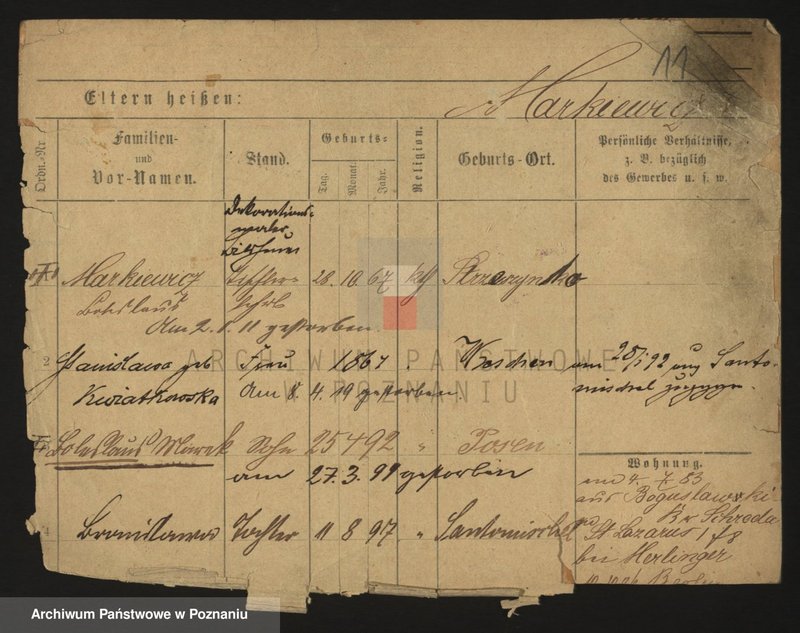 11
Eltern heißen:
Markiewicz
Ordn.-Nr.
Familien-
und
Vor-Namen.
Stand.
Geburts-
Tag.
Monat.
Jahr.
Religion.
Geburts-Ort.
Persönliche Verhältnisse,
z. B. bezüglich
des Gewerbes u. s. w.
Dekorations-
maler
Markiewicz Tischler- 28. 10. 67 kth
Boleslaus
Am 2. 1. 11 gestorben.
2 Stanislawa geb Frau 1867 Wreschen am 25/5 92 Santo-
Kwiatkowska Am 8. 4. 19 gestorben. mischel
Boleslaus Marek Sohn 25 4 92 " Posen
am 27. 3. 99 gestorben
Bronislawa Tochter 11 8 97 " Santomischel
Wohnung.
aus Boguslawki
Kr Schroda
St Lazarus
bei Herlinger
Berlin
ARCHIWUM PAŃSTWOWE
W POZNANIU
Archiwum Państwowe w Poznaniu